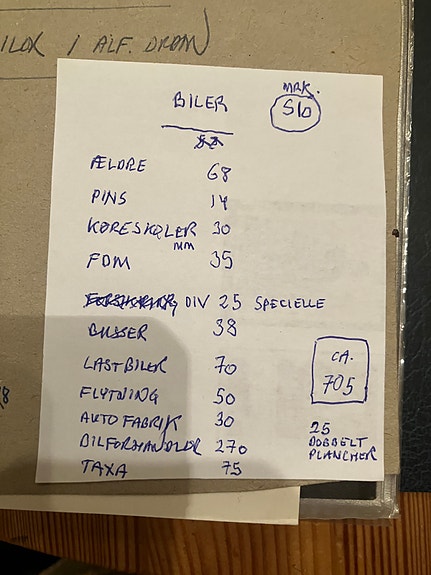 I ALF. DRAM
BILER
MRK.
S10
ÆLDRE 68
PINS 14
KØRESKOLER 30
MM
FDM 35
DIV 25 SPECIELLE
BUSSER 38
LASTBILER 70
FLYTNING 50
AUTOFABRIK 30
BILFORHANDLER 270
TAXA 75
CA.
705
25
DOBBELT
PLANCHER